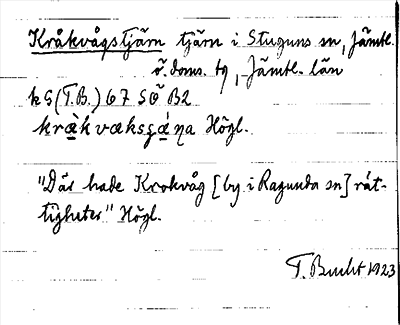 Kråkvågstjärn tjärn i Stuguns sn, Jämtl.
ö. doms. tg, Jämtl. län
kg (T.B.) 67 SÖ B2
Högl.
"Där hade Krokvåg [by i Ragunda sn] rät-
tigheter" Högl.
T. Bucht 1923